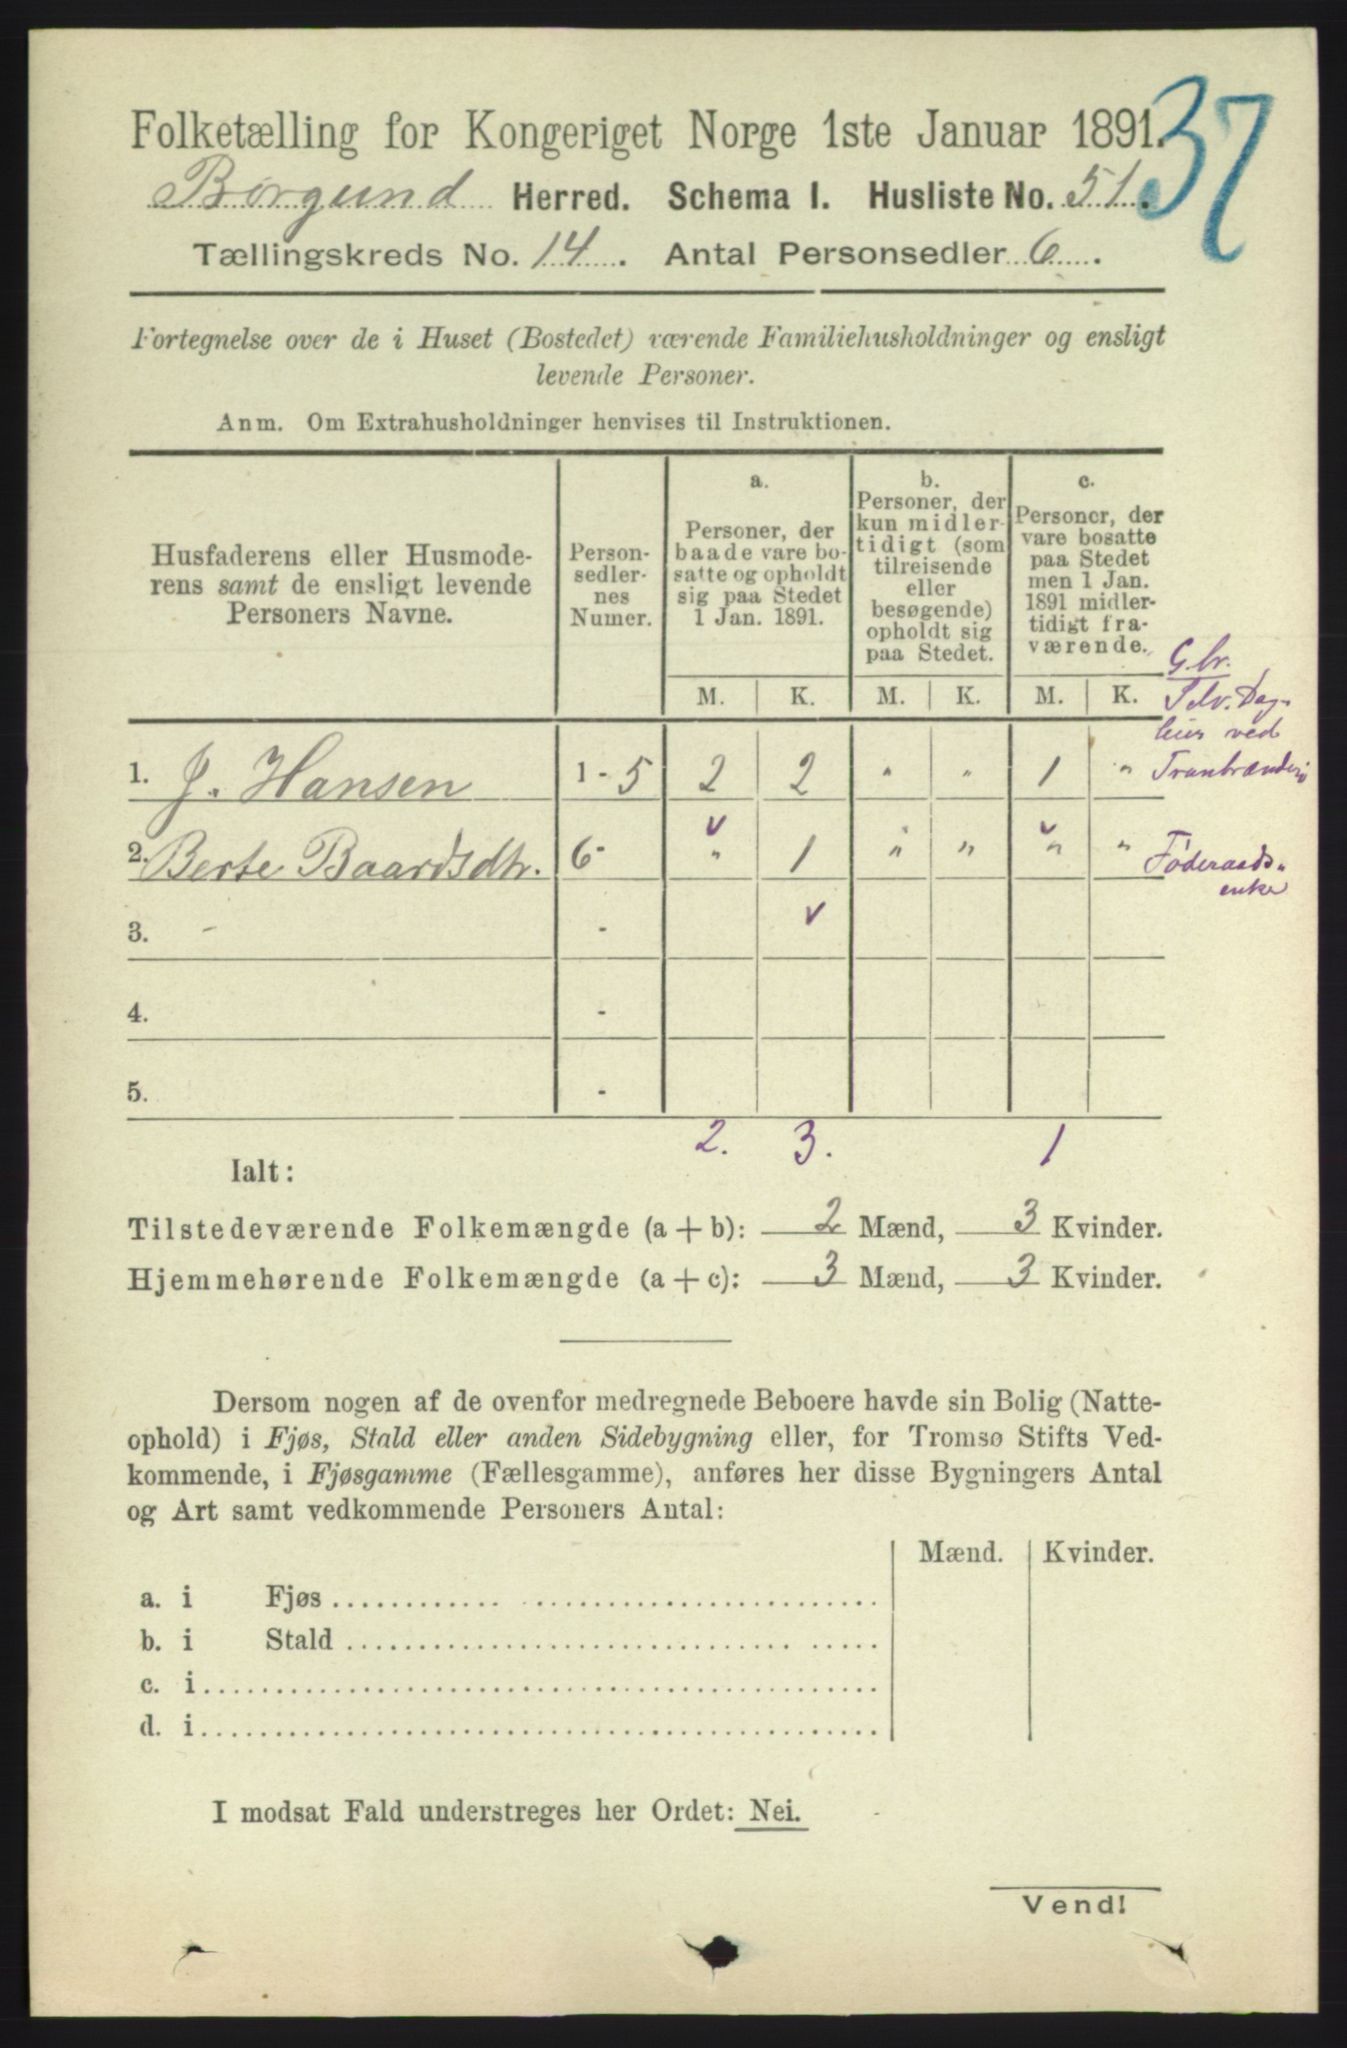 37
Folketælling for Kongeriget Norge 1ste Januar 1891.
Borgund Herred. Schema I. Husliste No. 51.
Tællingskreds No. 14. Antal Personsedler 6.
Fortegnelse over de i Huset (Bostedet) værende Familiehusholdninger og ensligt
levende Personer.
Anm. Om Extrahusholdninger henvises til Instruktionen.
Husfaderens eller Husmode-
rens samt de ensligt levende
Personers Navne.
Person-
sedler-
nes
Numer.
a.
Personer, der
baade vare bo-
satte og opholdt
sig paa Stedet
1 Jan. 1891.
b.
Personer, der
kun midler-
tidigt (som
tilreisende
eller
besøgende)
opholdt sig
paa Stedet.
c.
Personer, der
vare bosatte
paa Stedet
men 1 Jan.
1891 midler-
tidigt fra-
værende.
M. K. M. K. M. K.
G.br.
Selv. Dag-
leier ved
Tranbrænderi
1. J. Hansen 1 - 5 2 2 " " 1 "
2. Berte Baardsdtr. 6- " 1 " " " "
Føderaads-
enke
3. -
4. -
5. -
2. 3. 1
Ialt:
Tilstedeværende Folkemængde (a + b): 2 Mænd, 3 Kvinder.
Hjemmehørende Folkemængde (a + c): 3 Mænd, 3 Kvinder.
Dersom nogen af de ovenfor medregnede Beboere havde sin Bolig (Natte-
ophold) i Fjøs, Stald eller anden Sidebygning eller, for Tromsø Stifts Ved-
kommende, i Fjøsgamme (Fællesgamme), anføres her disse Bygningers Antal
og Art samt vedkommende Personers Antal:
Mænd. Kvinder.
a. i Fjøs
b. i Stald
c. i
d. i
I modsat Fald understreges her Ordet: Nei.
Vend!